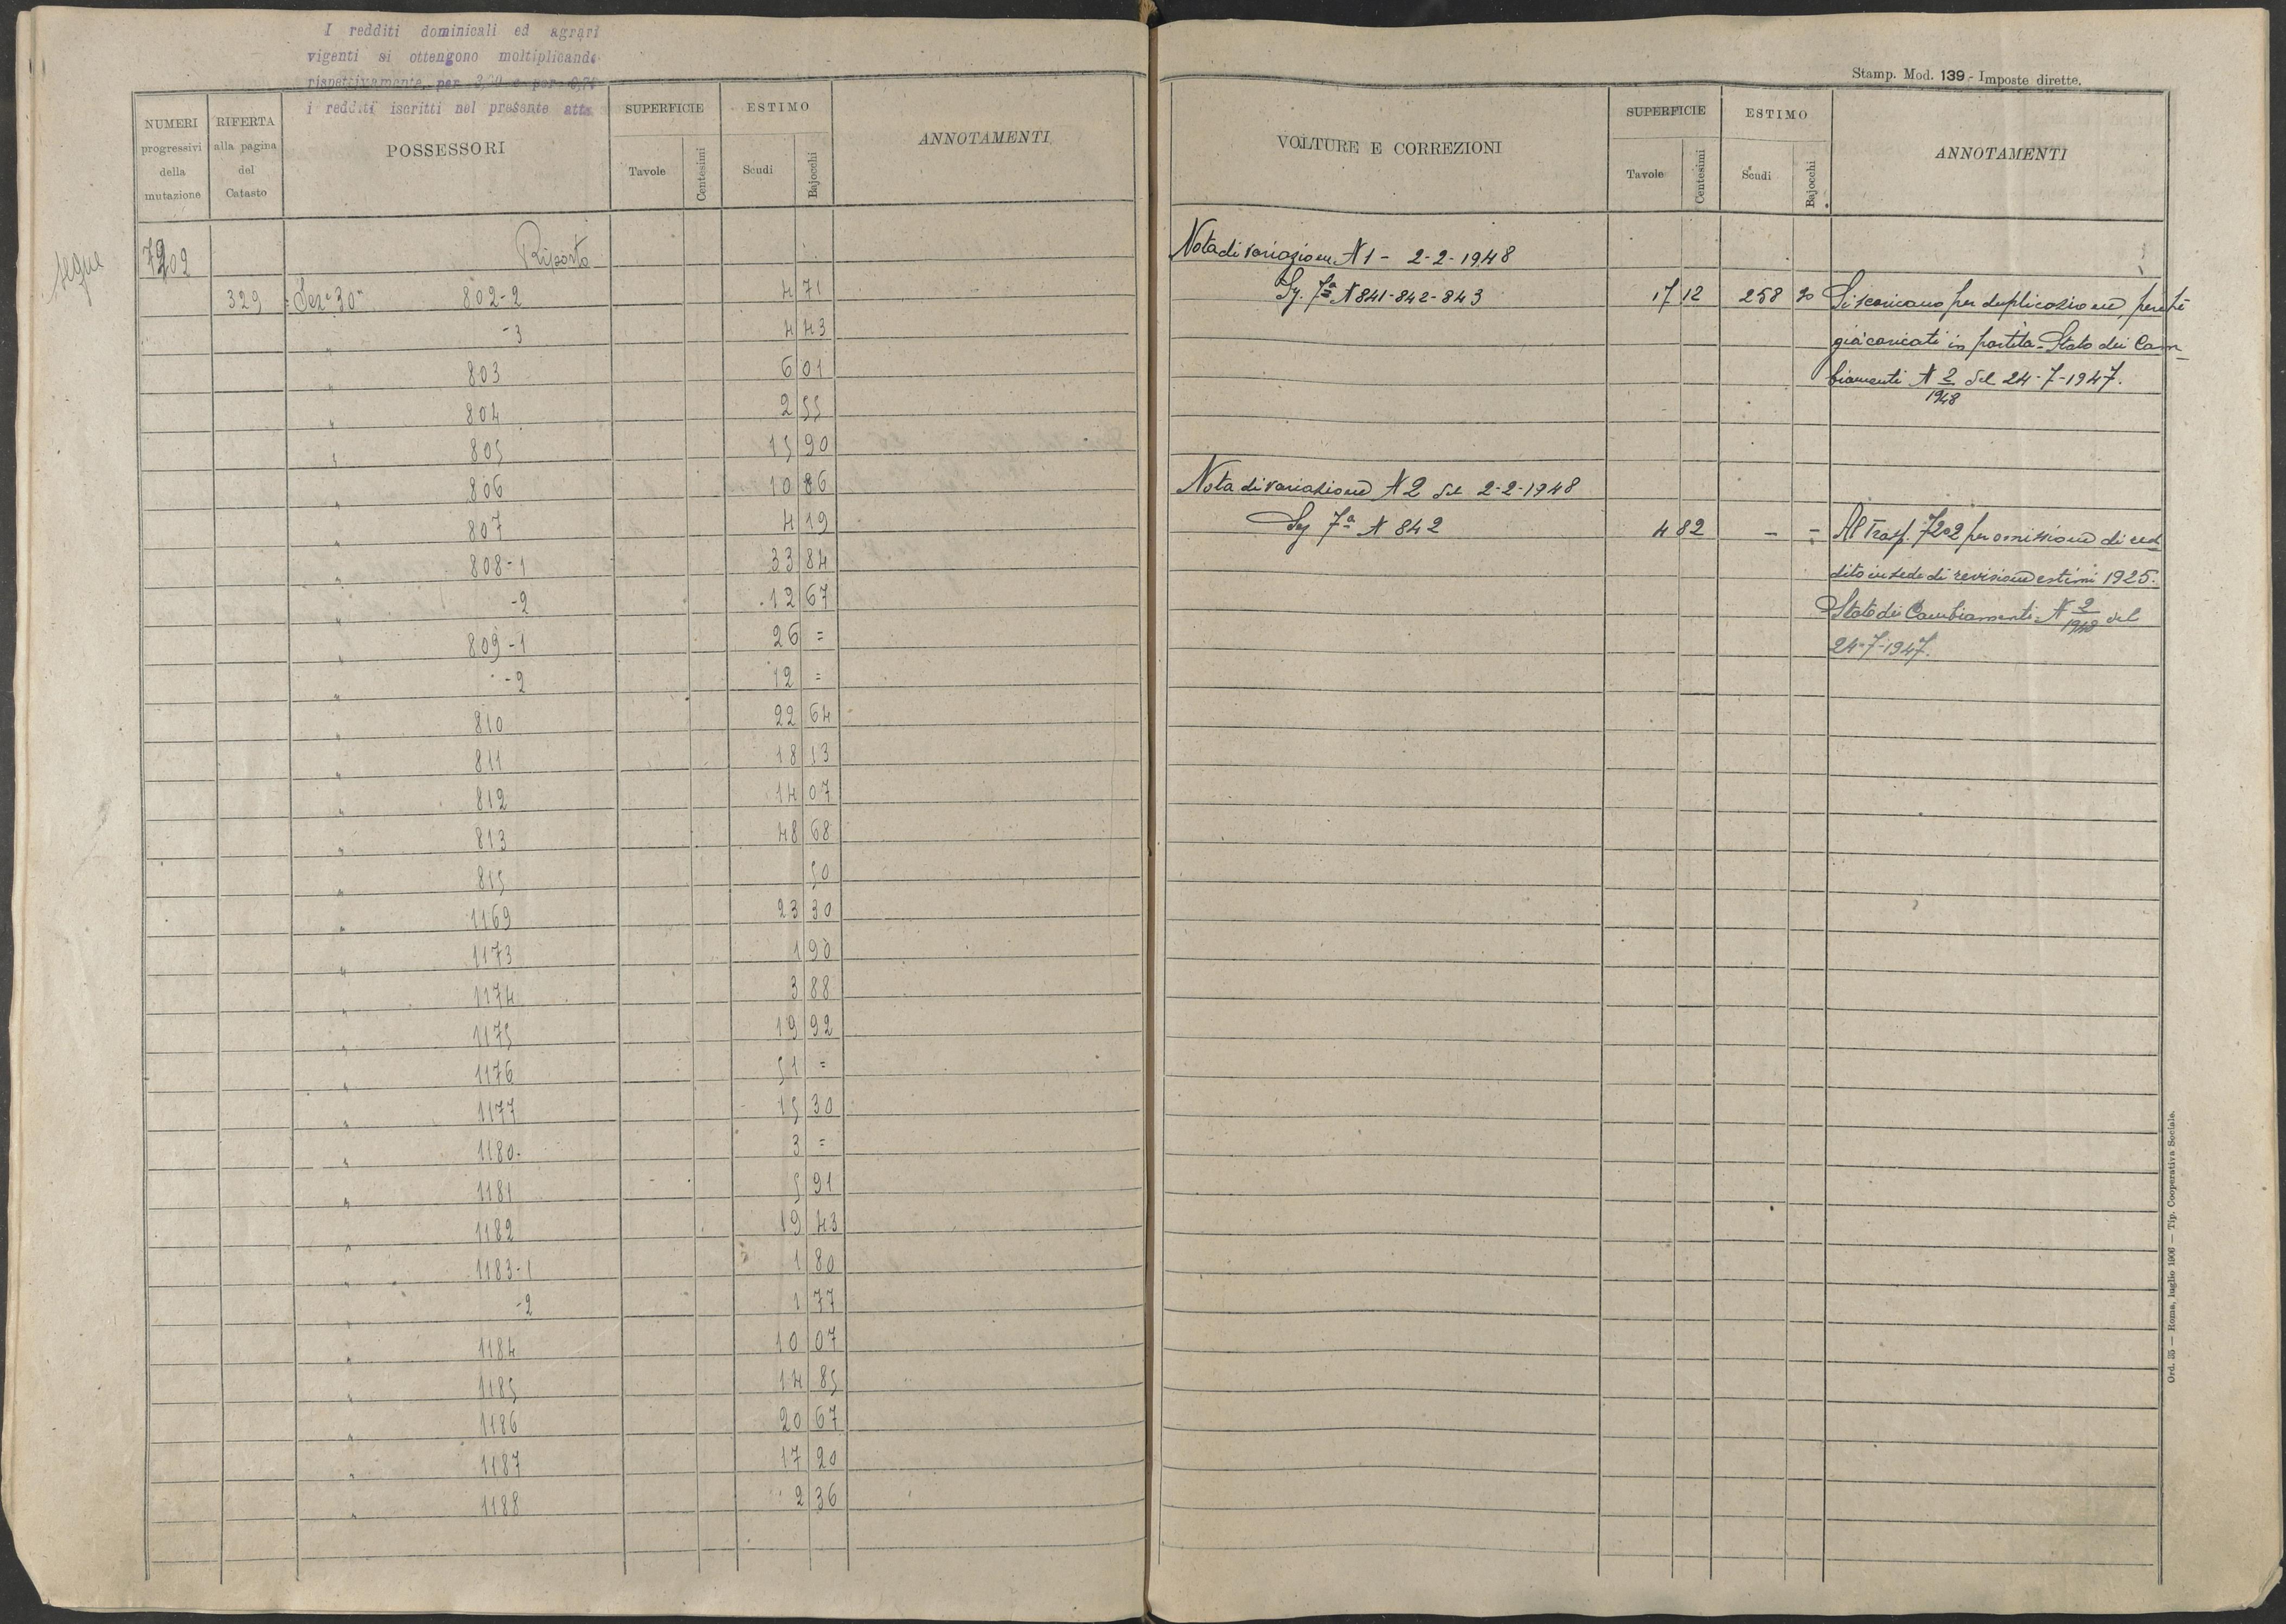 I redditi dominicali ed agrari
vigenti si ottengono moltiplicando
rispettivamente, per 3,20 e per
i redditi iscritti nel presente atto
NUMERI progressivi della mutazione
RIFERTA alla pagina del Catasto
POSSESSORI
SUPERFICIE
Tavole
Centesimi
ESTIMO
Scudi
Bajocchi
ANNOTAMENTI
segue
7202 Riporto
329 Sez.e 30a 802-2 4 71
" -3 4 43
" 803 6 01
" 804 2 55
" 805 15 90
" 806 10 86
" 807 4 19
" 808-1 33 84
" -2 12 67
" 809-1 26 =
" -2 12 =
" 810 22 64
" 811 18 13
" 812 14 07
" 813 48 68
" 815 50
" 1169 23 30
" 1173 1 90
" 1174 3 88
" 1175 19 92
" 1176 51 =
" 1177 15 30
" 1180. 3 =
" 1181 5 91
" 1182 19 43
" 1183-1 1 80
" -2 1 77
" 1184 10 07
" 1185 14 85
" 1186 20 67
" 1187 17 20
" 1188 2 36
Stamp. Mod. 139 - Imposte dirette.
VOLTURE E CORREZIONI
SUPERFICIE
Tavole
Centesimi
ESTIMO
Scudi
Bajocchi
ANNOTAMENTI
Nota di variazione N 1 - 2-2-1948
Sez. 7a N 841-842-843 17 12 258 90 Si scaricano per duplicazione, perchè
già caricati in partita - Stato dei Cam-
biamenti N 2/1948 del 24-7-1947.
Nota di variazione N 2 del 2-2-1948
Sez 7a N 842 4 82 - = Al Trasf. 7202 per omissione di red
dito in sede di revisione estimi 1925.
Stato dei Cambiamenti N 2/1948 del
24-7-1947.
Ord. 35 — Roma, luglio 1906 — Tip. Cooperativa Sociale.